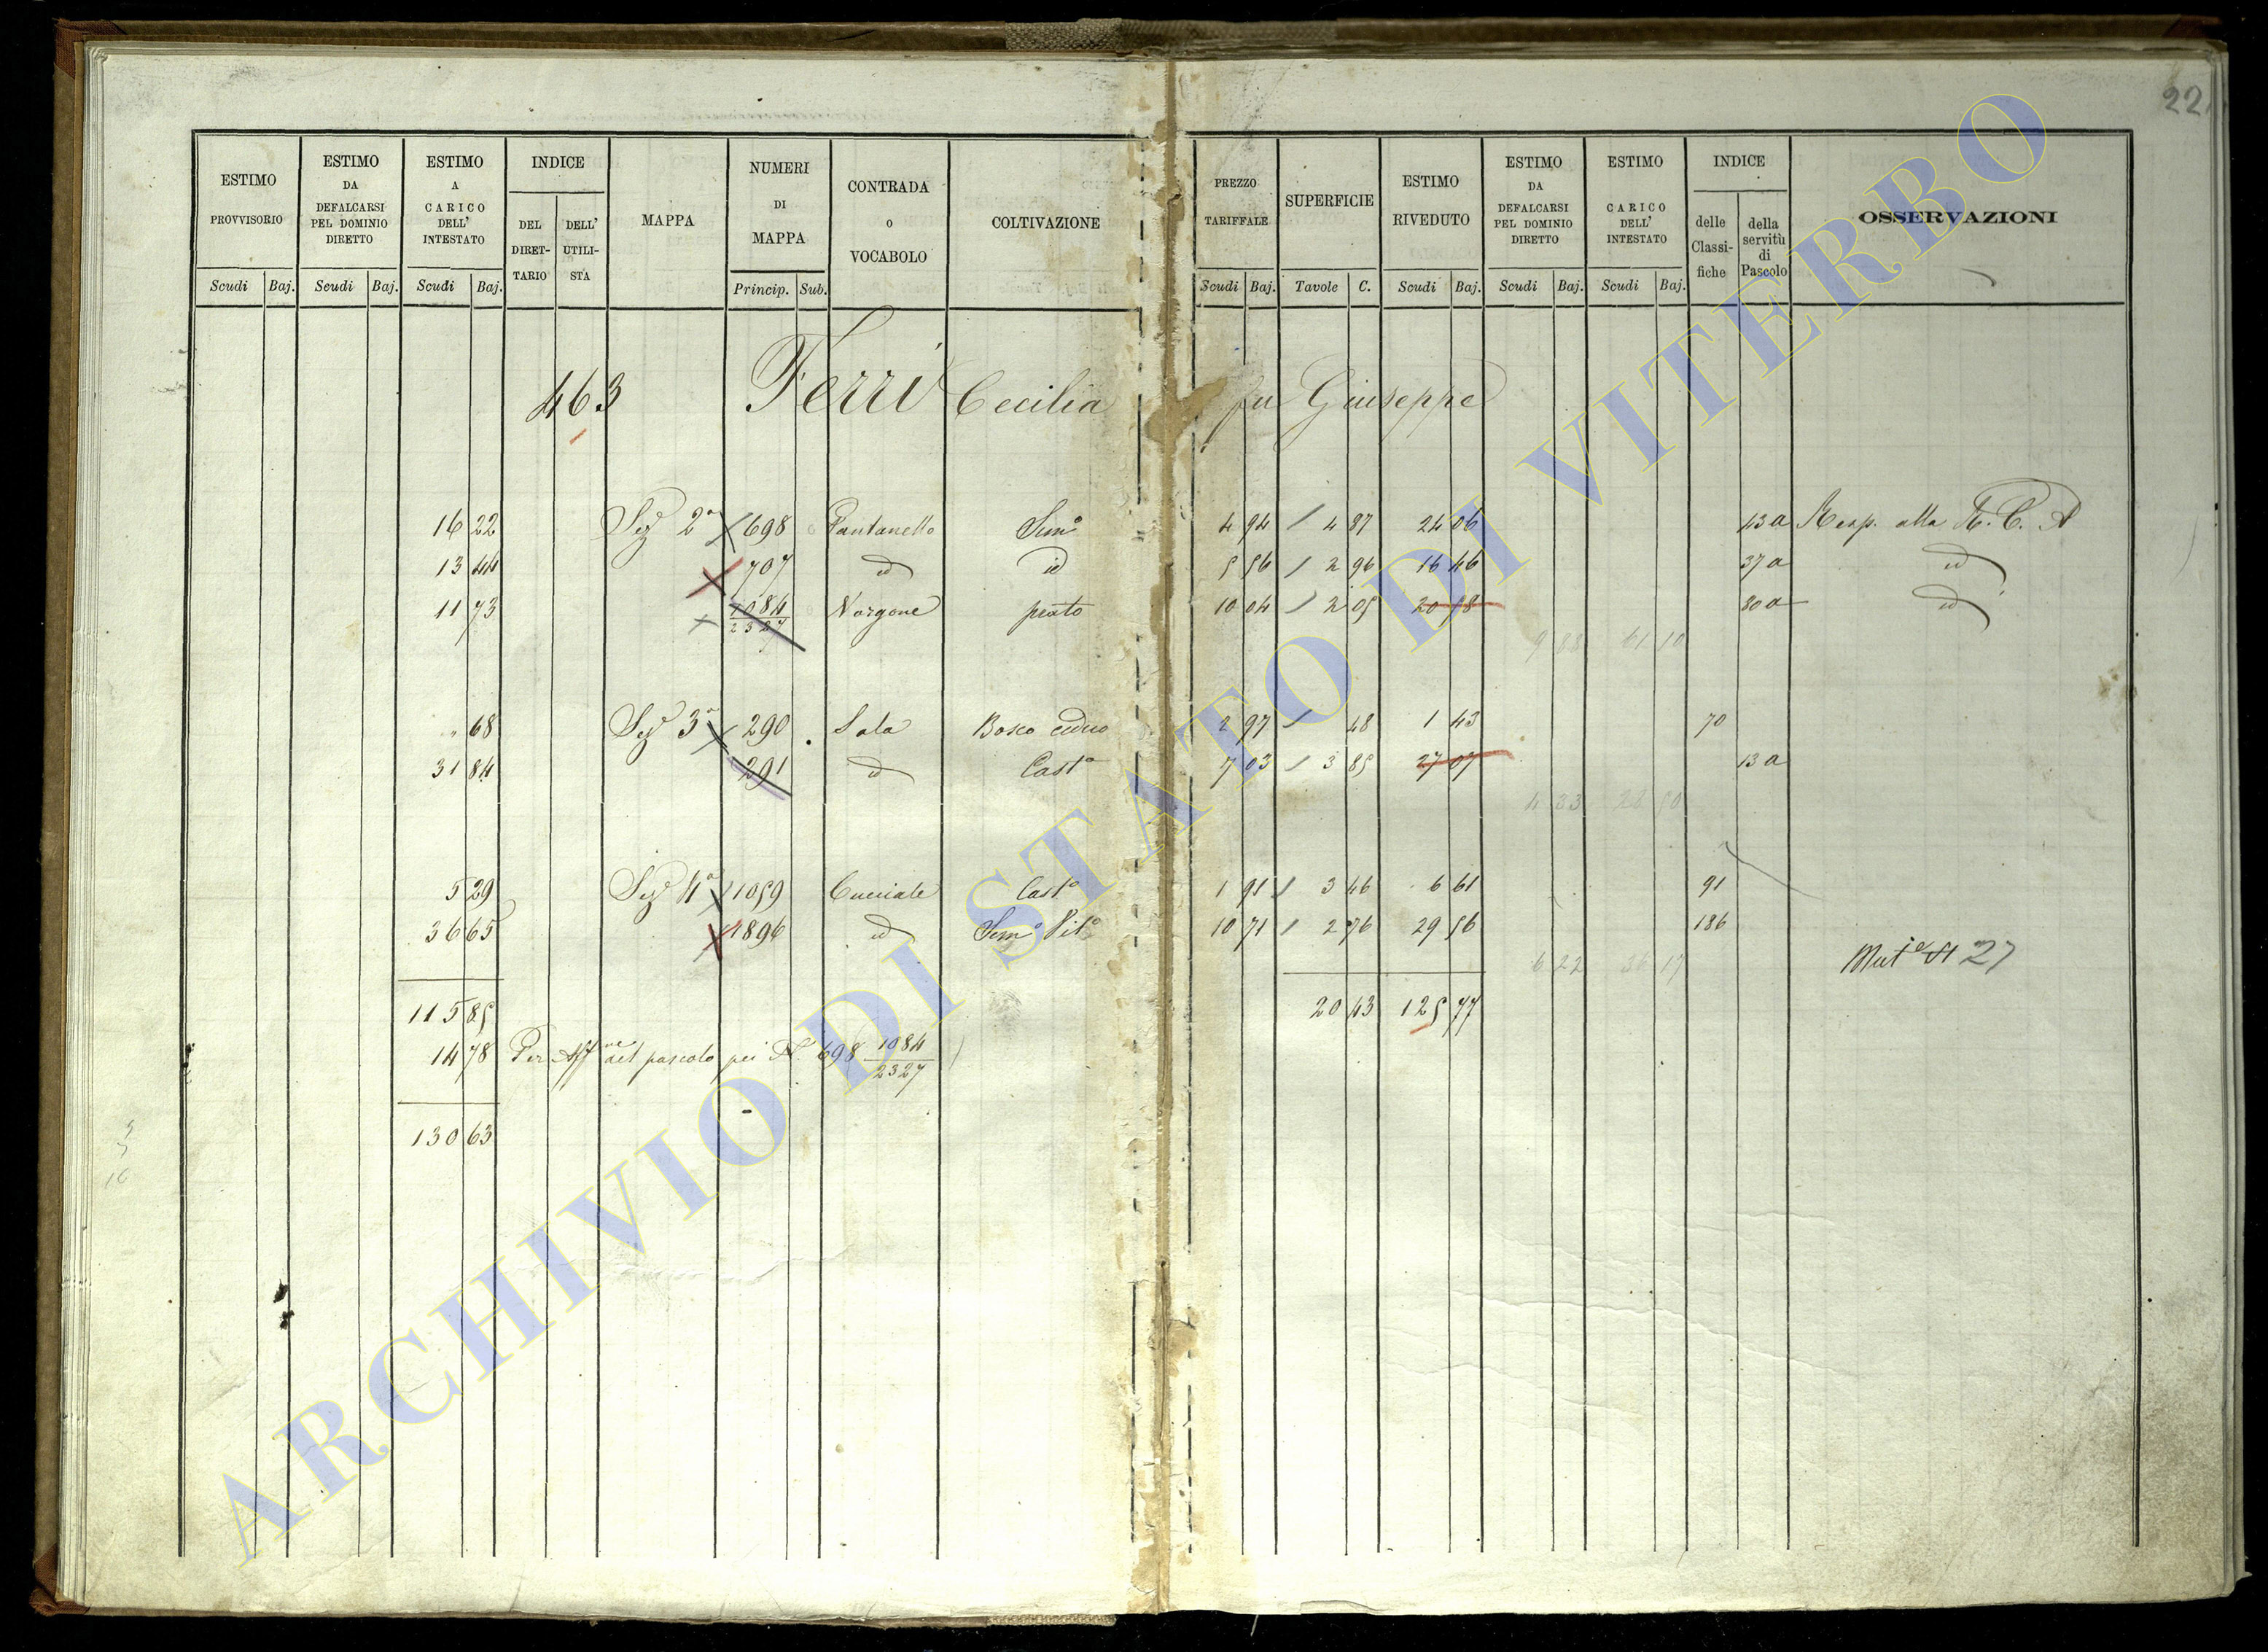 22
ESTIMO PROVVISORIO Scudi Baj.
ESTIMO DA DEFALCARSI PEL DOMINIO DIRETTO Scudi Baj.
ESTIMO A CARICO DELL' INTESTATO Scudi Baj.
INDICE DEL DIRET-TARIO DELL' UTILI-STA
MAPPA
NUMERI DI MAPPA Princip. Sub.
CONTRADA o VOCABOLO
COLTIVAZIONE
PREZZO TARIFFALE Scudi Baj.
SUPERFICIE Tavole C.
ESTIMO RIVEDUTO Scudi Baj.
ESTIMO DA DEFALCARSI PEL DOMINIO DIRETTO Scudi Baj.
ESTIMO A CARICO DELL' INTESTATO Scudi Baj.
INDICE delle Classi-fiche della servitù di Pascolo
OSSERVAZIONI
463 Ferri Cecilia fu Giuseppe
16 22 Sez 2ª 698 Pantanello Semº 4 94 4 87 24 06 43a Resp. alla R. C. A
13 44 707 id id 5 56 2 96 16 46 37a id
11 73 1084/2327 Norgone prato 10 04 2 05 20 58 80a id
9 88 61 10
68 Sez 3ª 290 Sala Bosco ceduo 2 97 48 1 43 70
31 84 291 id Castº 7 03 3 85 27 07 13a
4 33 28 50
5 29 Sez 4ª 1059 Cucciale Castº 1 91 3 46 6 61 91
36 65 1896 id Semº Vitº 10 71 2 76 29 56 186
6 22 36 17
Mutº 27
115 85 20 43 125 77
14 78 Per Affne del pascolo pei N. 698 1084/2327
130 63
ARCHIVIO DI STATO DI VITERBO